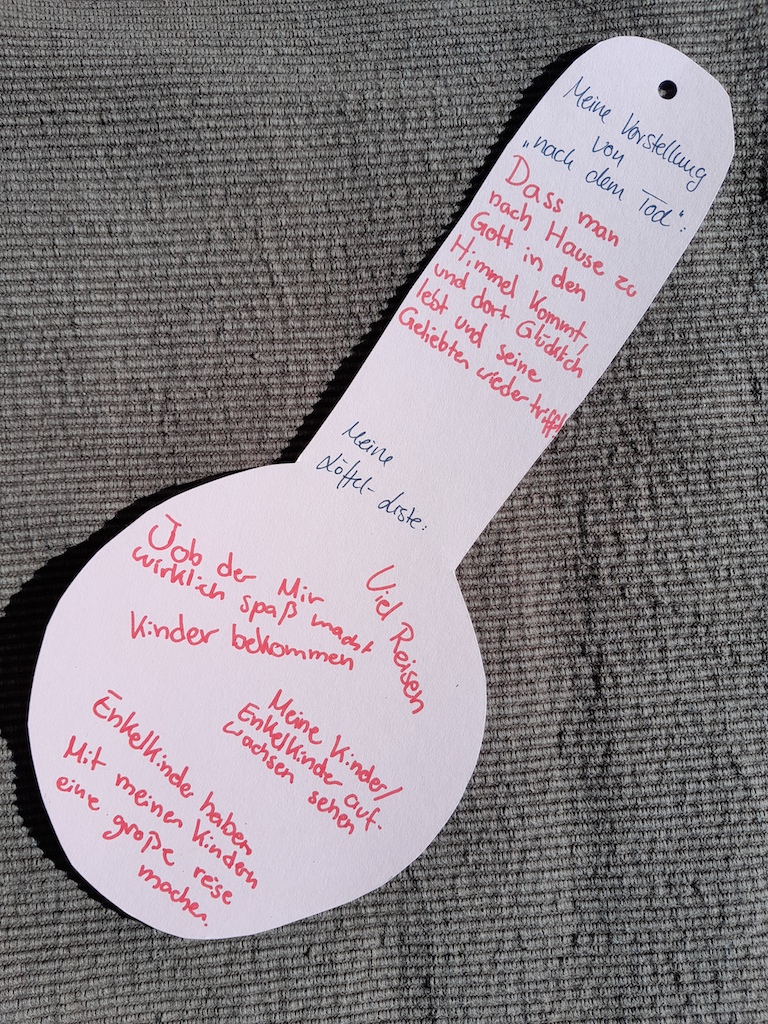 Meine Vorstellung
von
„nach dem Tod":
Dass man
nach Hause zu
Gott in den
Himmel kommt,
und dort Glücklich
lebt und seine
Geliebten wieder trifft!
Meine
Löffel-Liste:
Job der Mir
wirklich spaß macht
Viel Reisen
Kinder bekommen
Meine Kinder/
Enkelkinder auf-
wachsen sehen
Enkelkinder haben
Mit meinen Kindern
eine große reise
machen.